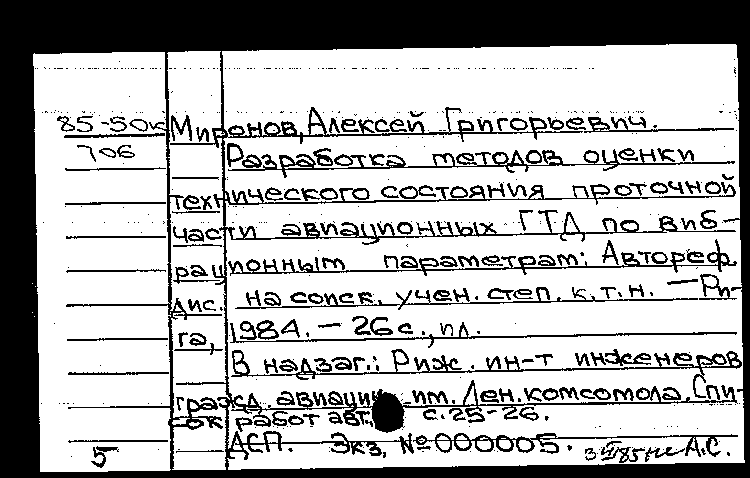 85-50к Миронов, Алексей Григорьевич.
706 Разработка методов оценки
технического состояния проточной
части авиационных ГТД по виб-
рационным параметрам: Автореф.
дис. на соиск. учен. степ. к.т.н. — Ри-
га, 1984. — 26 с., ил.
В надзаг.: Риж. ин-т инженеров
гражд. авиации им. Лен. комсомола. Спи-
сок работ авт. с. 25-26.
ДСП. Экз. №000005. А.С.
5